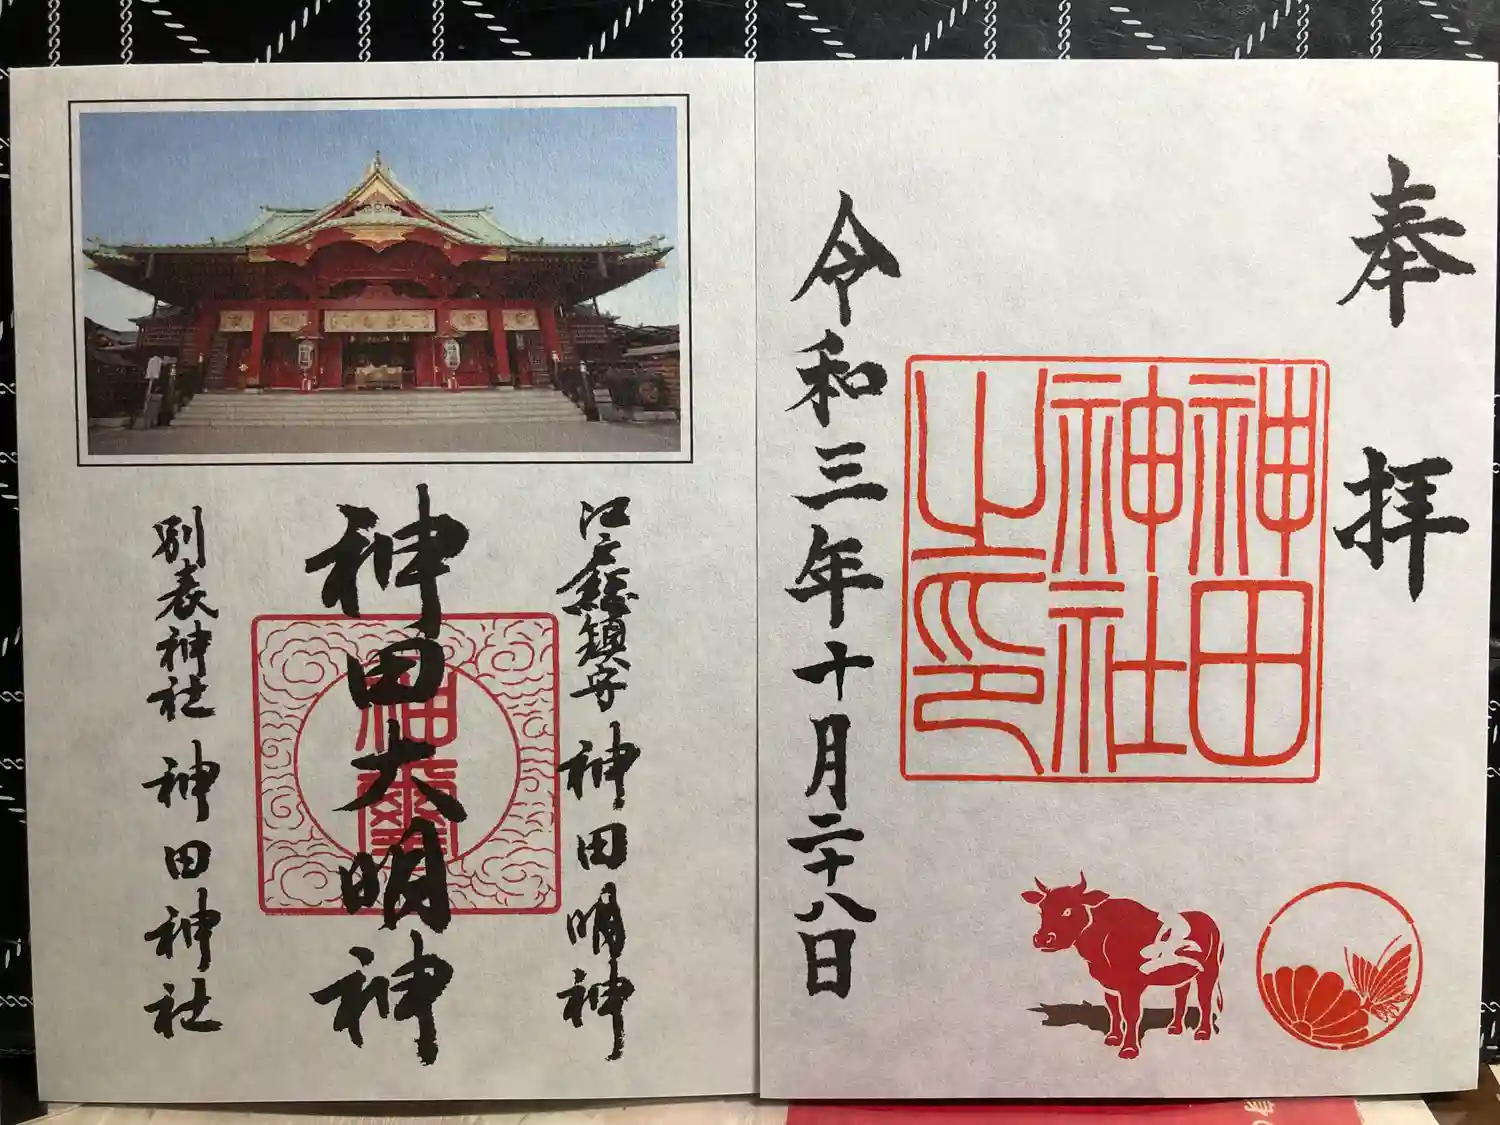 奉拝
神田
神社
之印
令和三年十月二十八日
江戸総鎮守 神田明神
神田大明神
別表神社 神田神社